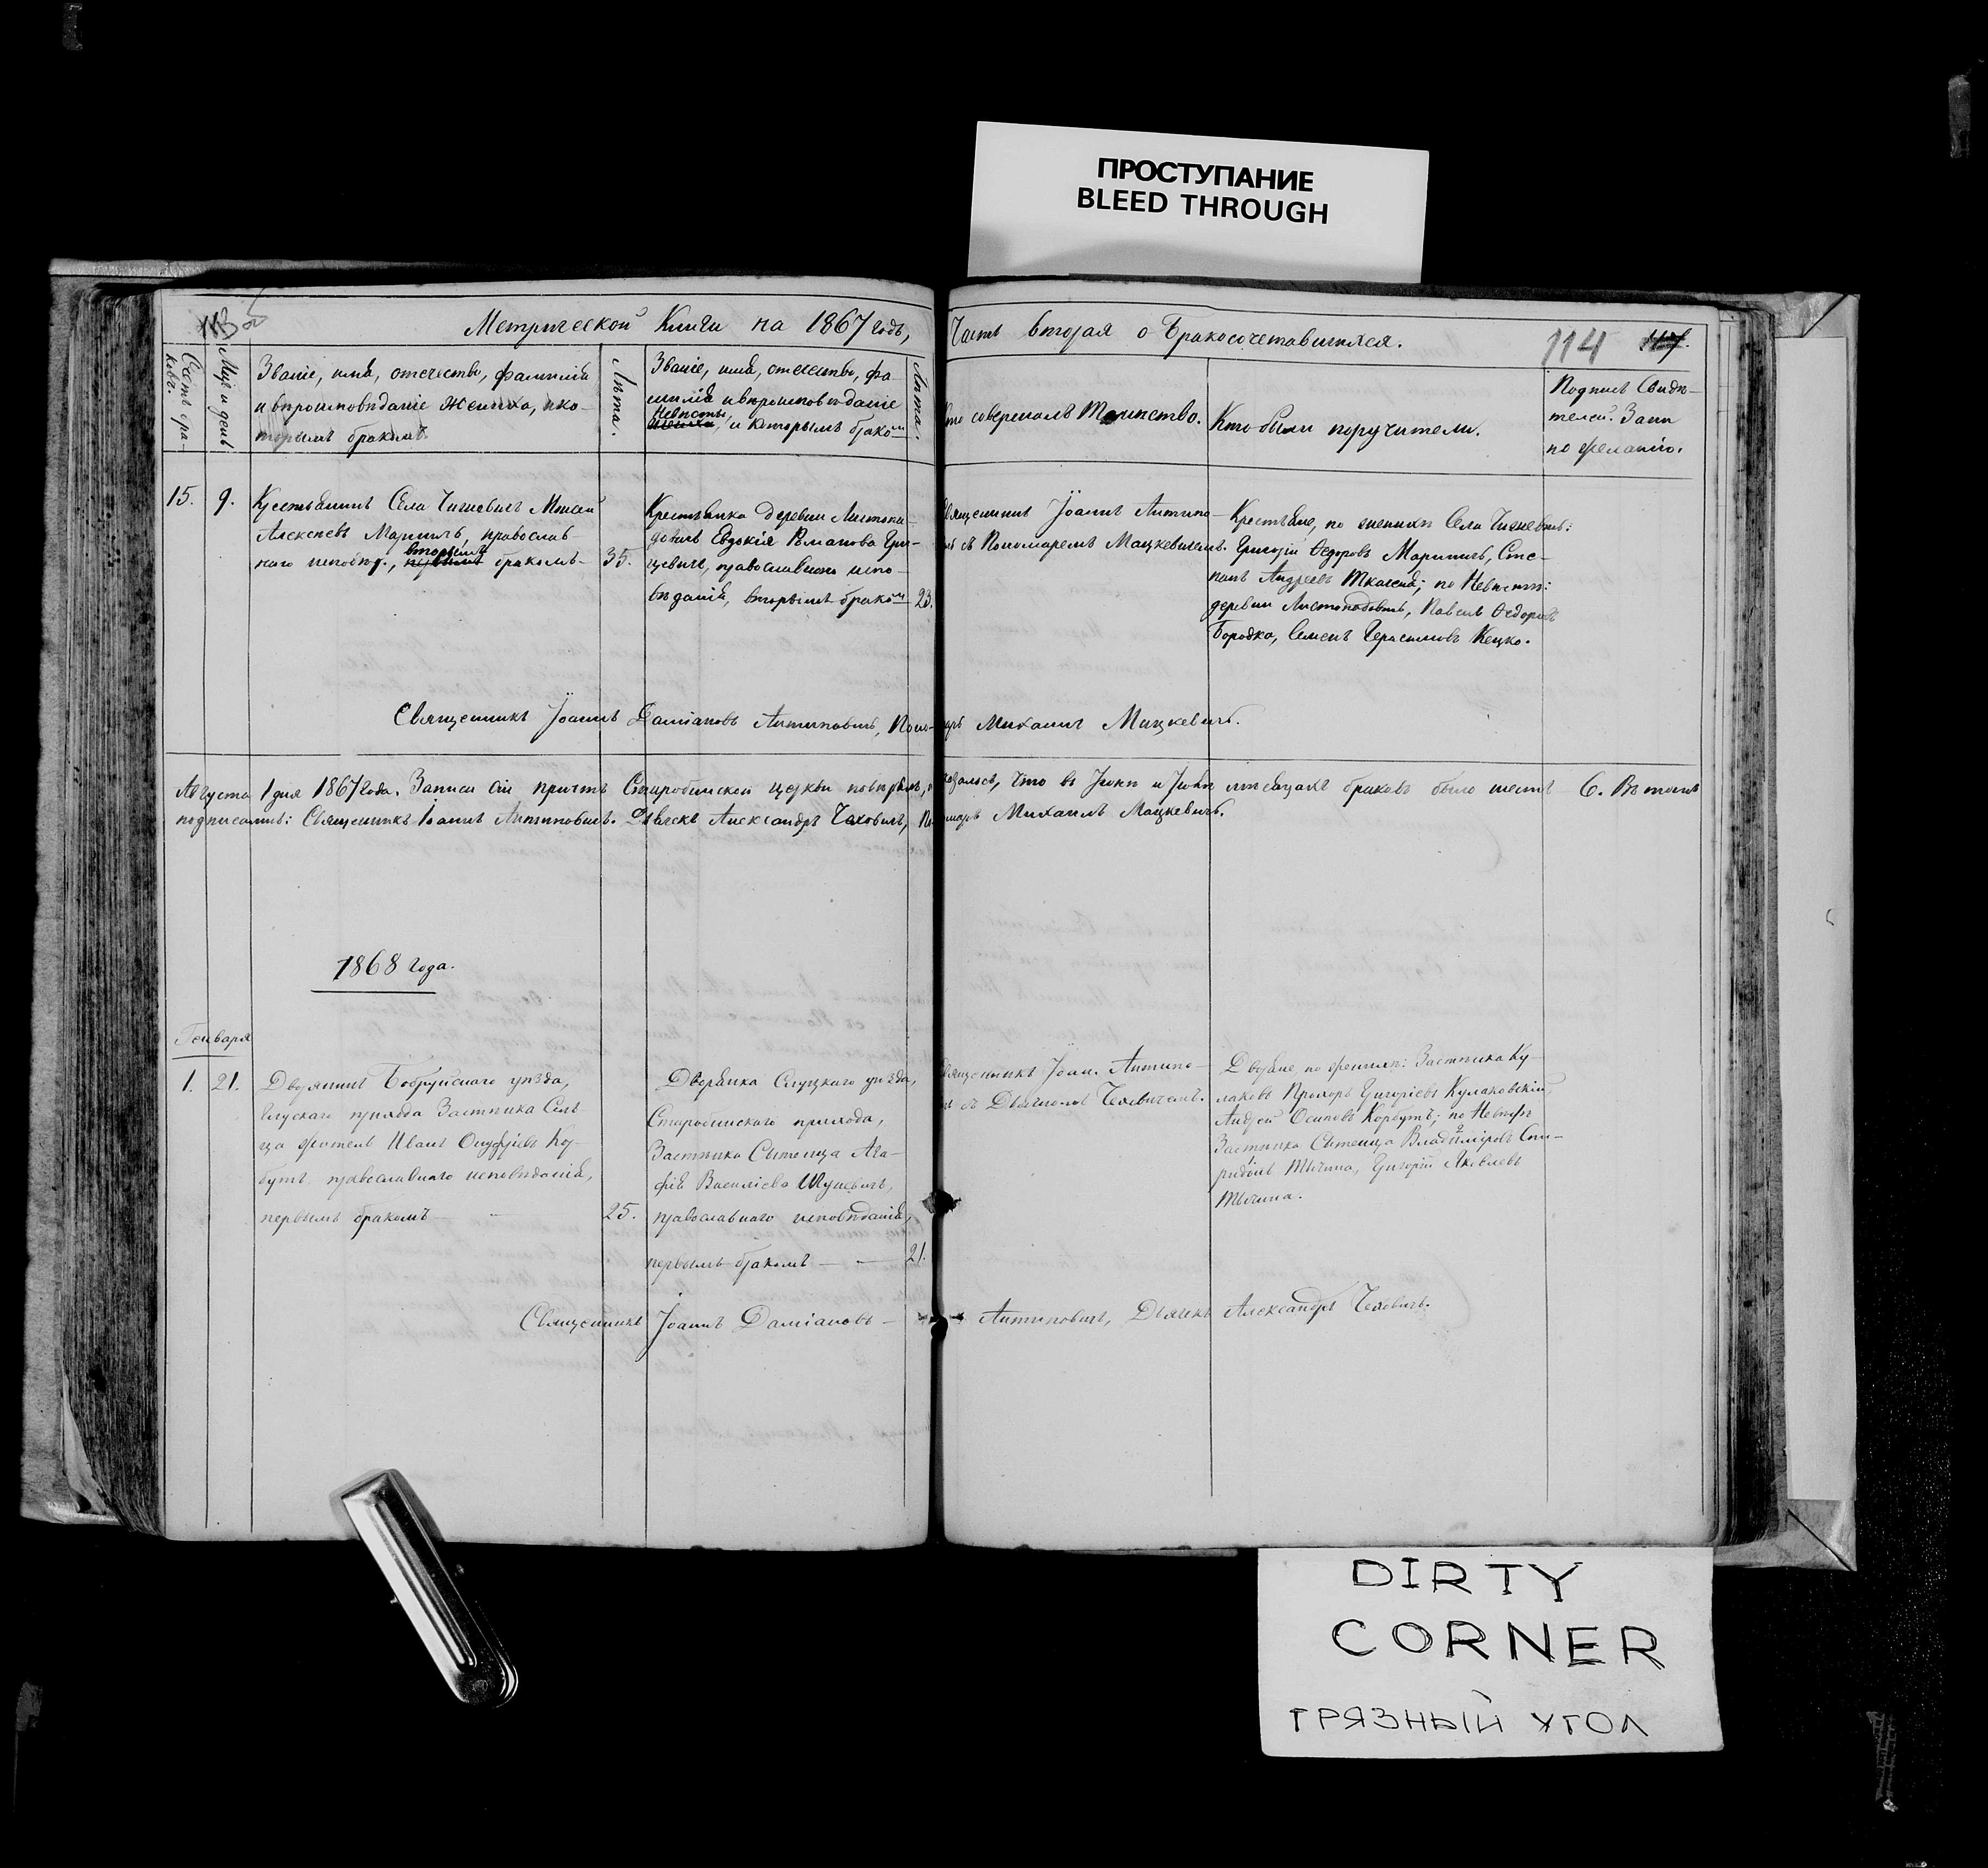 ПРОСТУПАНИЕ
BLEED THROUGH
Метрической Книги на 1867 годъ,
Часть вторая о Бракосочетавшихся.
114
Счетъ бра-
ковъ.
Мцъ и день
Званіе, имя, отечество, фамилія
и вѣроисповѣданіе Жениха, и ко-
торымъ бракомъ.
Лѣта.
Званіе, имя, отечество, фа-
милія и вѣроисповѣданіе
Невѣсты, и которымъ бракомъ
Лѣта.
Кто совершалъ Таинство.
Кто были поручители.
Подпись Свидѣ-
телей. Запи
по желанію.
15.
9.
Крестьянинъ Села Чижевичъ Моисей
Алексѣевъ Мариничъ, православ-
наго исповѣд., вторымъ бракомъ
35.
Крестьянка деревни Листопа-
довичъ Евдокія Романова Гри-
цевичъ, православнаго испо-
вѣданія, вторымъ бракомъ
23.
Священникъ Іоаннъ Антипо-
съ Пономаремъ Мацкевичемъ.
Крестьяне, по женихѣ Села Чижевичъ:
Григорій Ѳедоровъ Мариничъ, Сте-
панъ Андреевъ Ткачевъ; по Невѣстѣ:
деревни Листопадовичъ, Павелъ Ѳедоровъ
Бородко, Семенъ Герасимовъ Кецко.
Священникъ Іоаннъ Даміановъ Антиповичъ, Поно-
марь Михаилъ Мацкевичъ.
Августа 1 дня 1867 года. Записи сіи причтъ Старобинской церкви повѣрялъ, и
оказалось, что въ Іюнѣ и Іюлѣ мѣсяцахъ браковъ было шесть 6. Въ томъ
подписались: Священникъ Іоаннъ Антиповичъ. Дьячекъ Александръ Чеховичъ, По-
номарь Михаилъ Мацкевичъ.
1868 года.
Генваря
1.
21.
Дворянинъ Бобруйскаго уѣзда,
Глускаго прихода Застѣнка Сель-
ца житель Иванъ Онуфріевъ Кор-
бутъ, православнаго исповѣданія,
первымъ бракомъ
25.
Дворянка Слуцкаго уѣзда,
Старобинскаго прихода,
Застѣнка Сытенца Ага-
фія Василіева Шуневичъ,
православнаго исповѣданія,
первымъ бракомъ
21.
Священникъ Іоан. Антипо-
съ Дьячкомъ Чеховичемъ.
Дворяне по женихѣ: Застѣнка Ку-
лаковъ Прохоръ Григоріевъ Кулаковскій,
Андрей Осиповъ Корбутъ; по Невѣстѣ
Застѣнка Сытенца Владиміровъ Спи-
ридонъ Тычина, Григорій Яковлевъ
Тычина.
Священникъ Іоаннъ Даміановъ
Антиповичъ, Дьячекъ Александръ Чеховичъ.
DIRTY
CORNER
ГРЯЗНЫЙ УГОЛ